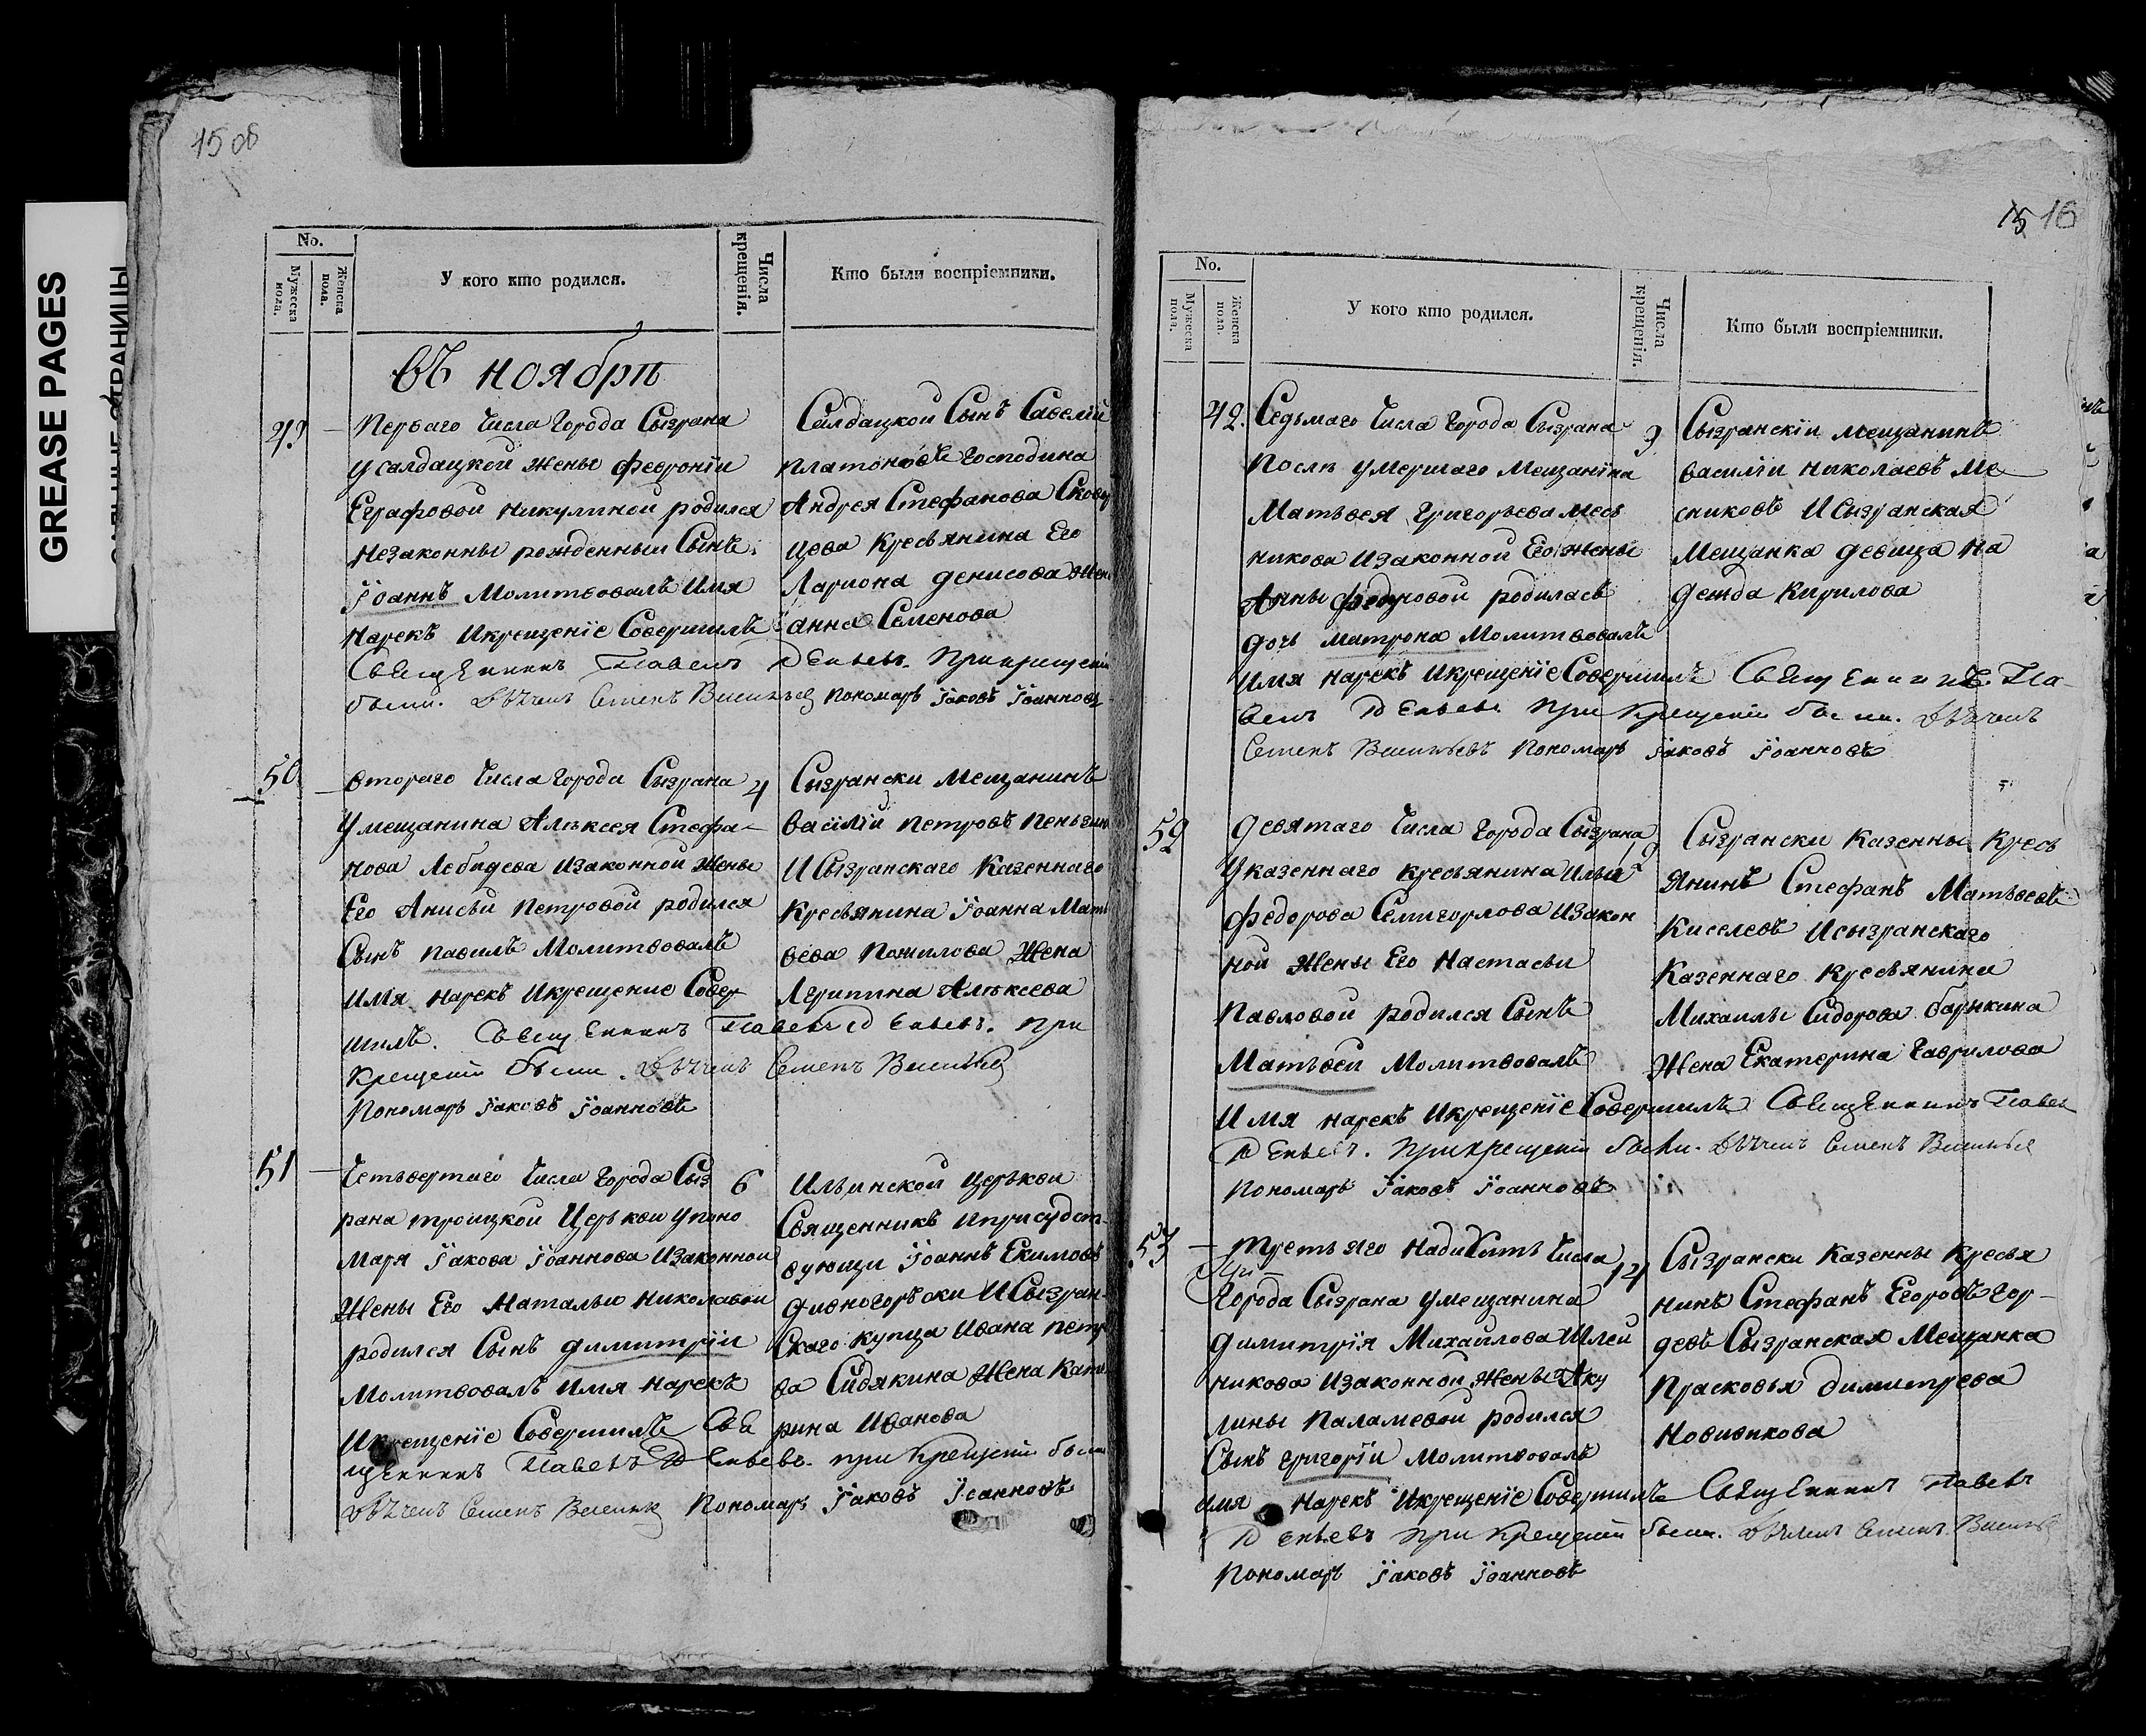 GREASE PAGES
15 об
No.
Мужеска пола.
Женска пола.
У кого кто родился.
Числа крещенія.
Кто были воспріемники.
въ ноябрѣ
Перваго Числа Города Сызрана
у салдацкой жены февроніи
Евграфовой Никулиной родился
незаконны рожденныи Сынъ
Іоаннъ Молитвовалъ Имя
нарекъ Икрещеніе Совершилъ
Священникъ Павелъ
были. Дьячекъ Семенъ Васильев пономарь Іаковъ Іоанновъ
Салдацкой Сынъ Савелій
платоновъ Господина
Андрея Стефанова
цова Кресьянина Его
Лариона денисова Жена
анна Семенова
При крещеніи
50
втораго Числа Города Сызрана
4
Умещанина Алѣксея Стефа-
нова Лебидева Изаконной Жены
Его Анисьи Петровой родился
Сынъ павилъ Молитвовалъ
имя нарекъ Икрещение Совер
шилъ. Священникъ Павелъ При
Крещеніи были. Дьячекъ Семенъ Васильев
Пономарь Іаковъ Іоанновъ
Сызрански Мещанинъ
Василіи Петровъ
И Сызранскаго Казеннаго
Кресьянина Іоанна Мат
вева Жена
Агрипина Алѣксева
51
Четьвертаго Числа Города Сыз
6
рана троицкой Церькви упоно
маря Іакова Іоаннова Изаконной
Жены Его Натальи Николавои
родился Сынъ димитріи
Молитвовалъ Имя нарекъ
Икрещеніе Совершилъ Свя
щенникъ Павелъ при Крещеніи были
Дьячекъ Семенъ Васильев Пономарь Іаковъ Іоанновъ
Ильинской церькви
Священникъ Иприсудст-
вующи Іоаннъ Екимовъ
дивногорьски И Сызран-
Скаго купца Ивана петр
ва Сидякина Жена Кате
рина Иванова
15 16
No.
Мужеска пола.
Женска пола.
У кого кто родился.
Числа крещенія.
Кто были воспріемники.
42.
Седьмаго Числа Города Сызрана
9
Послѣ умершаго Мещанина
Матьвея Григорьева Мес
никова Изаконной Его жены
Анны федоровой родилась
дочь матрона Молитвовалъ
имя нарекъ Икрещеніе Совершилъ Священникъ Па-
велъ При Крещеніи были. Дьячекъ
Семенъ Васильевъ Пономарь Іаковъ Іоанновъ
Сызранскіи мещанинъ
василіи николаевъ Ме
сниковъ И Сызранская
Мещанка девица На
дежда Кирилова
52
девятаго Числа Города Сызрана
Указеннаго кресьянина Ильи
федорова Семигорлова Изакон
ной Жены Его Настасьи
Павловой родился Сынъ
Матьвеи Молитвовалъ
Имя нарекъ Икрещеніе Совершилъ Священникъ Павел
При крещеніи были. Дьячекъ Семенъ Васильев
Пономарь Іаковъ Іоанновъ
Сызрански Казенны Кресь
янинъ Стефанъ Матьвевъ
Киселевъ Исызранскаго
Казеннаго Кресьянина
Михаилы Сидорова барыкина
Жена Екатерина Гаврилова
53
третьяго надцать Числа
14
Города Сызрана умещанина
димитрія Михаилова Шлеи
никова Изаконной Жены Аку
лины Паламевой родился
Сынъ григоріи Молитвовалъ
имя Нарекъ Икрещеніе Совершилъ Священникъ Павелъ
при Крещеніи были. Дьячекъ Семенъ Василье
Пономарь Іаковъ Іоанновъ
Сызрански Казенны Кресья
нинъ Стефанъ Егоровъ Гор-
девъ Сызранская Мещанка
Прасковья димитрева
Новикова